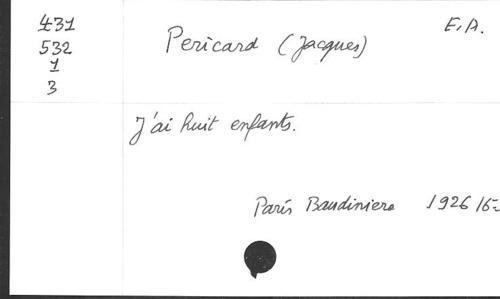 431
532
1
3
Pericard (Jacques)
E.A.
J'ai huit enfants.
Paris Baudiniere 1926 16-